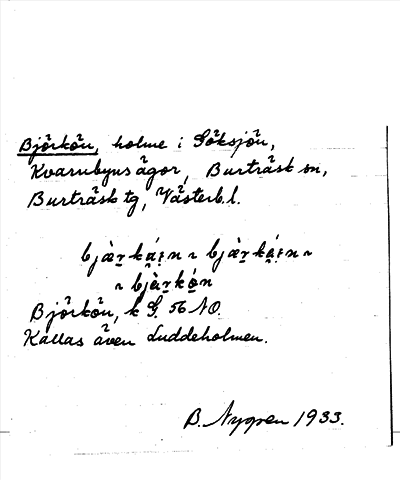 Björkön, holme i Göksjön,
Kvarnbyns ägor, Burträsk sn,
Burträsk tg, Västerb.l.
bjὰr̠ká̠i̠n ~ bjὰr̠ká̠i̠n ~
~ bjὰr̠kó̠n
Björkön, k G. 56 NO.
Kallas även Luddeholmen.
B. Nygren 1933.